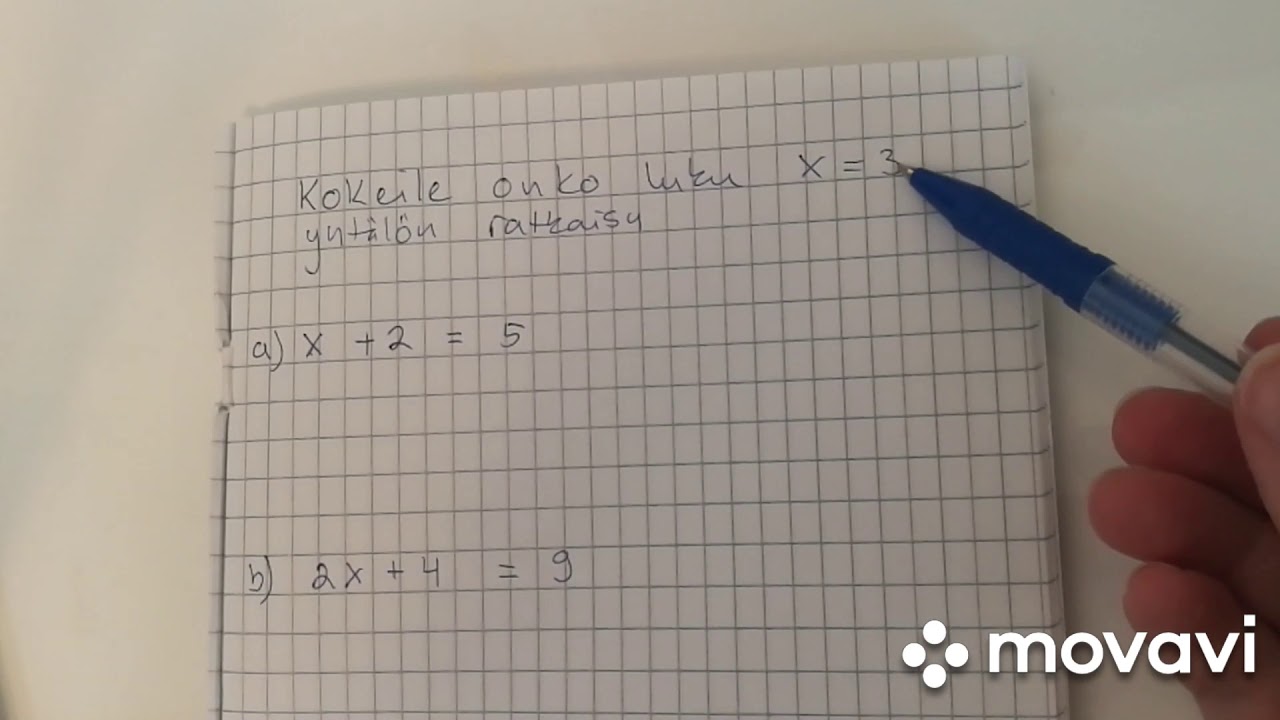 Kokeile onko luku x = 3
yhtälön ratkaisu
a) x + 2 = 5
b) 2x + 4 = 9
movavi